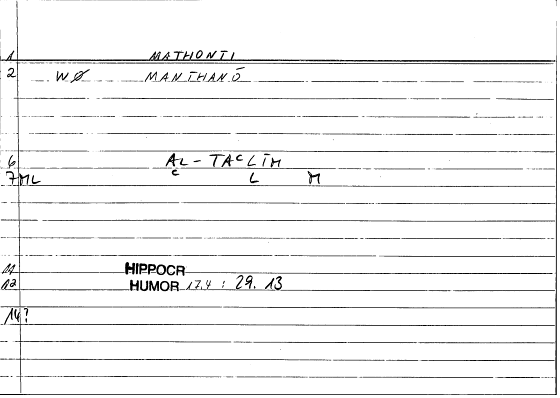 1 MATHONTI
2 WØ MANTHANŌ
6 AL-TAᶜLĪM
7 ML ᶜ L M
11 HIPPOCR
12 HUMOR 17.4 : 29. 13
14?